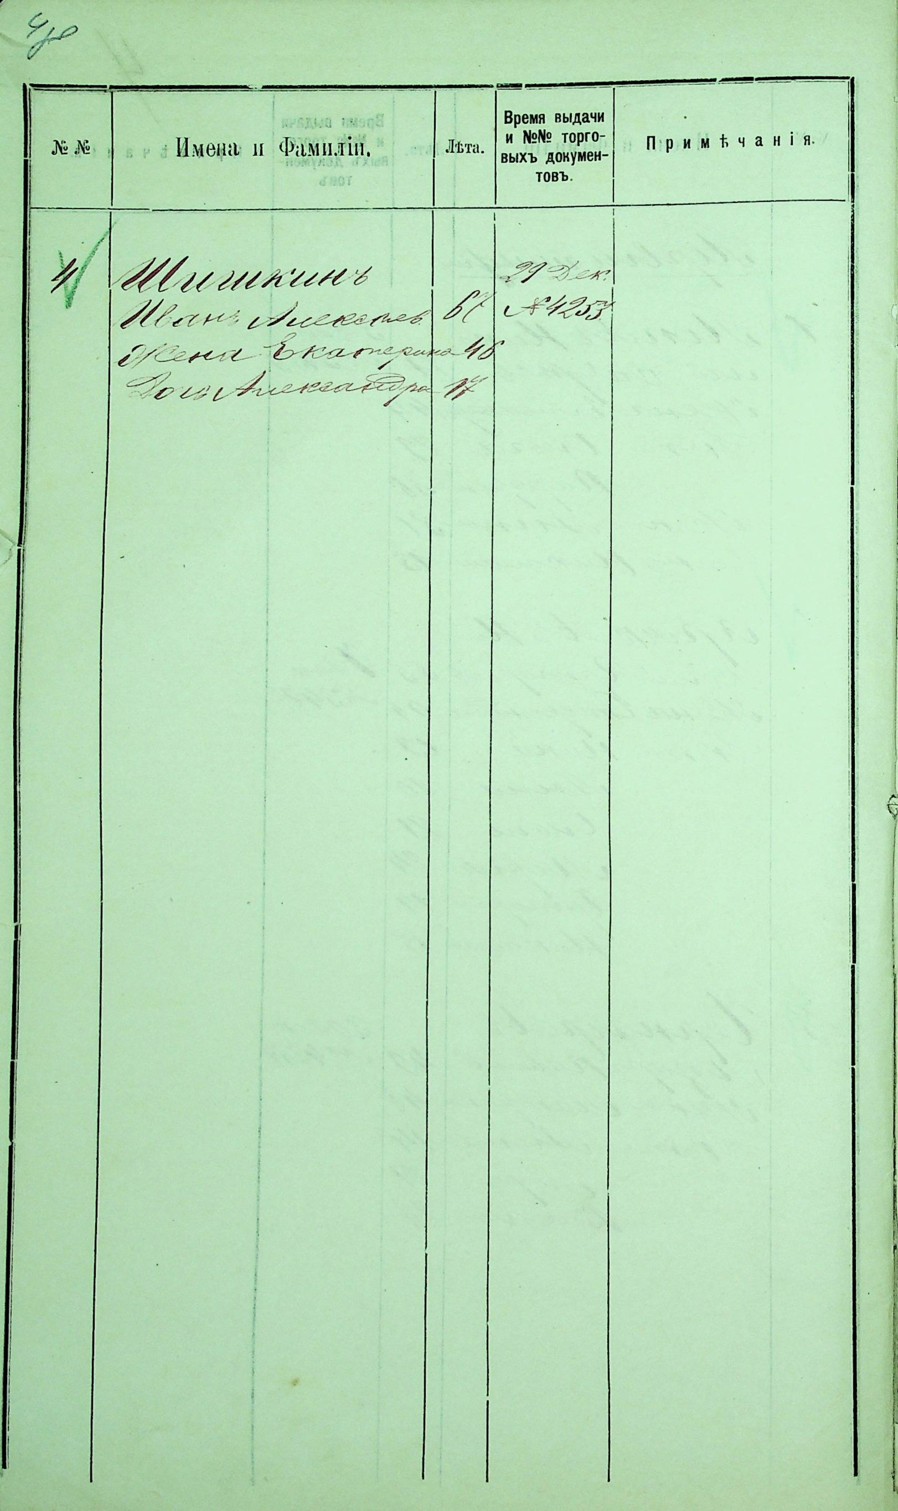 № №
Имена и Фамиліи.
Лѣта.
Время выдачи
и №№ торго-
выхъ докумен-
товъ.
Примѣчанія.
4 Шишкинъ 29 Дек.
Иванъ Алексѣевъ 67 № 4253
Жена Екатерина 46
Дочь Александра 17